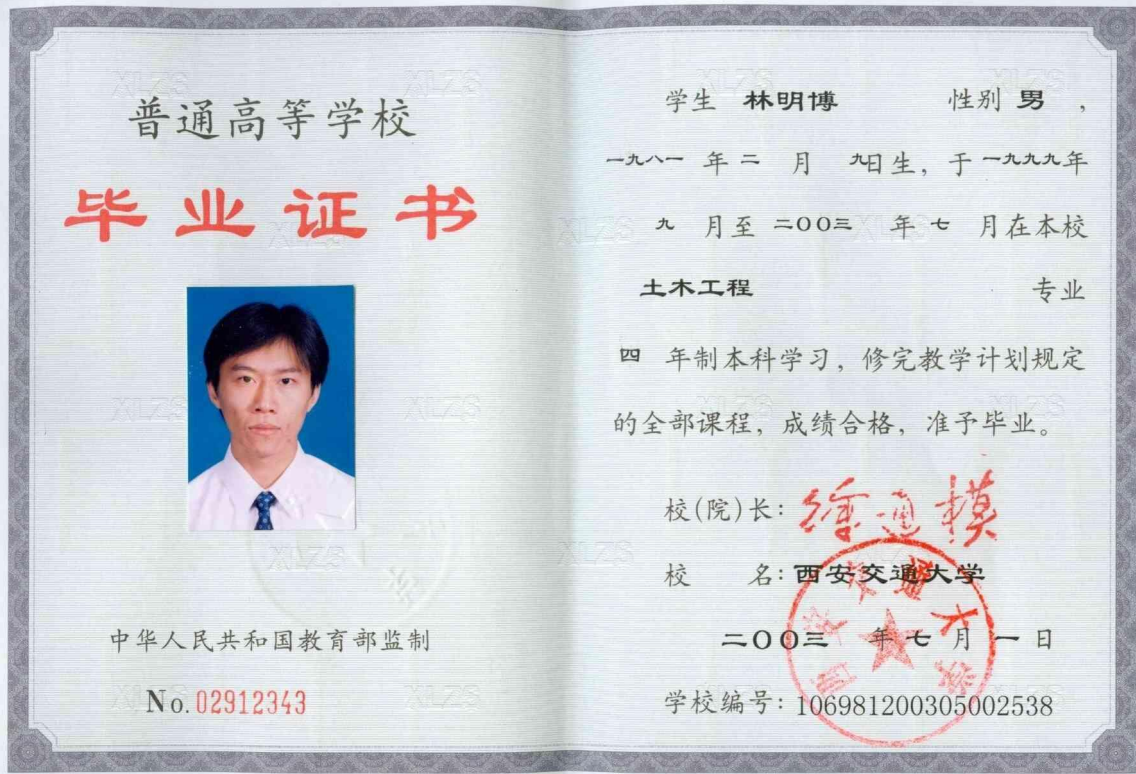 普通高等学校
毕业证书
中华人民共和国教育部监制
No. 02912343
学生 林明博 性别 男 ，
一九八一 年 二 月 九日生，于 一九九九年
九 月至 二00三 年 七 月在本校
土木工程 专业
四 年制本科学习，修完教学计划规定
的全部课程，成绩合格，准予毕业。
校(院)长： 徐通模
校 名：西安交通大学
二00三 年 七 月 一 日
学校编号：106981200305002538
西安交通大学
XLZS